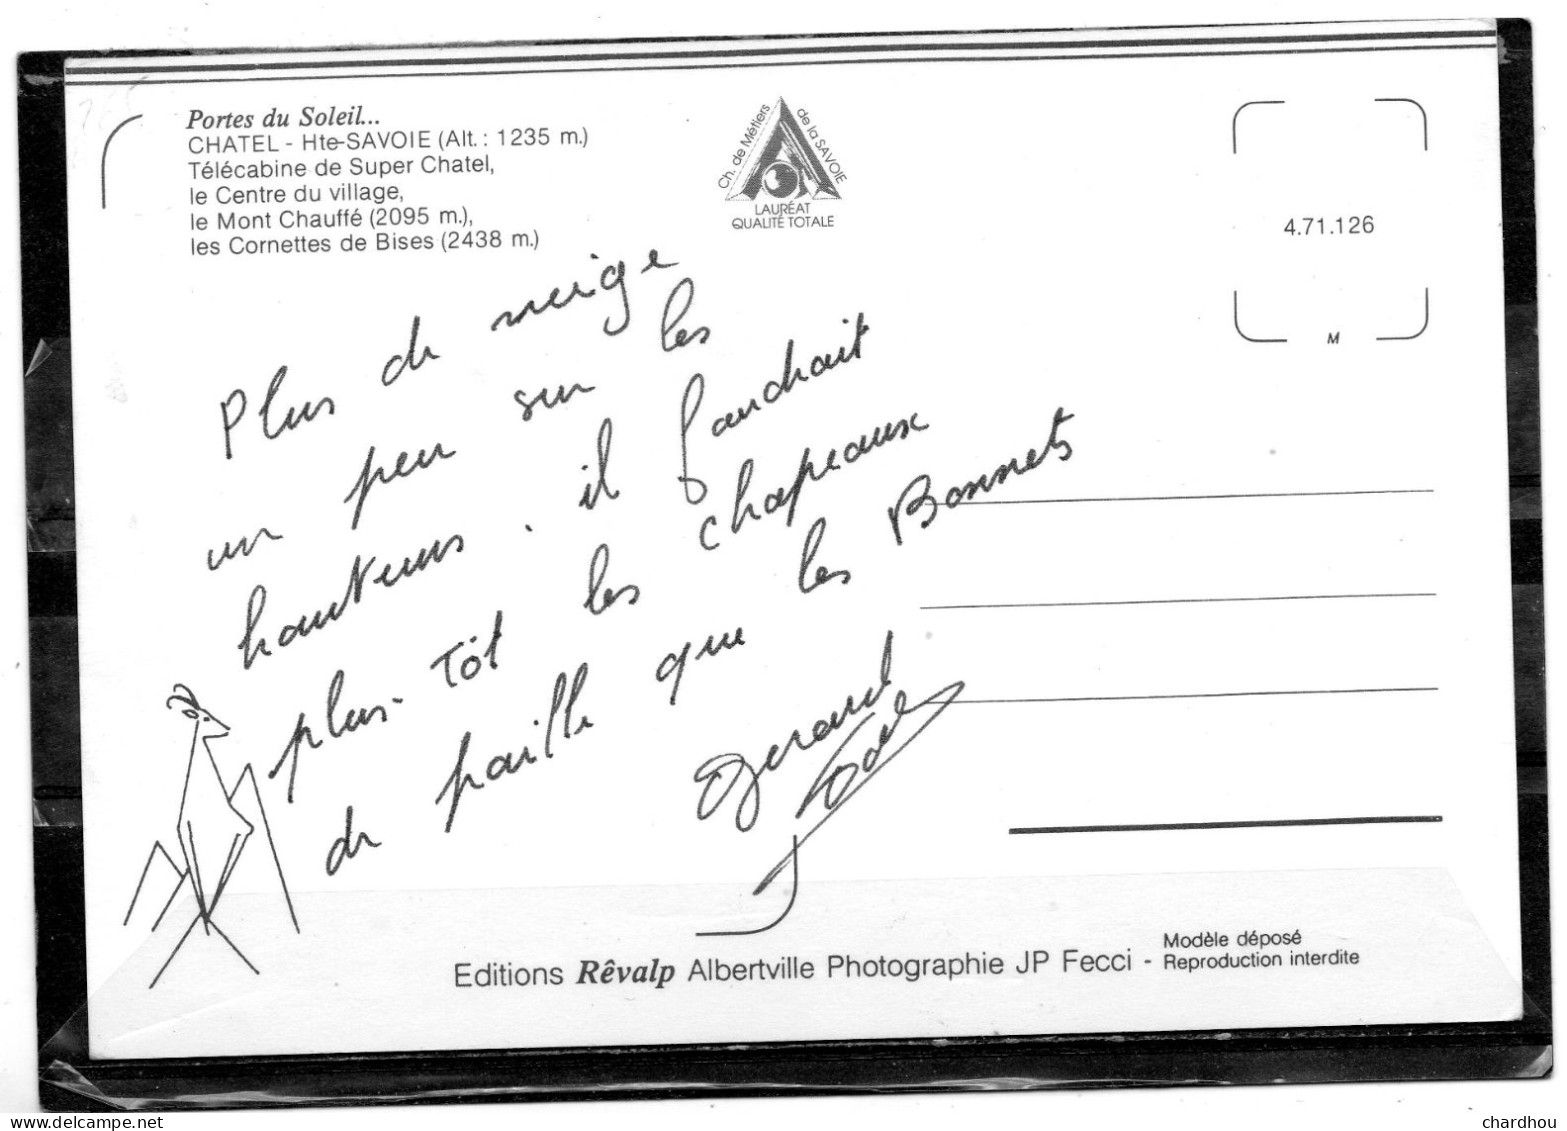 Portes du Soleil...
CHATEL - Hte-SAVOIE (Alt. : 1235 m.)
Télécabine de Super Chatel,
le Centre du village,
le Mont Chauffé (2095 m.),
les Cornettes de Bises (2438 m.)
Ch. de Métiers de la SAVOIE
LAURÉAT
QUALITÉ TOTALE
4.71.126
M
Plus de neige
un peu sur les
hauteurs. il faudrait
plus-tôt les chapeaux
de paille que les Bonnets
Gerard
Editions Rêvalp Albertville Photographie JP Fecci -
Modèle déposé
Reproduction interdite
delcampe.net
chardhou